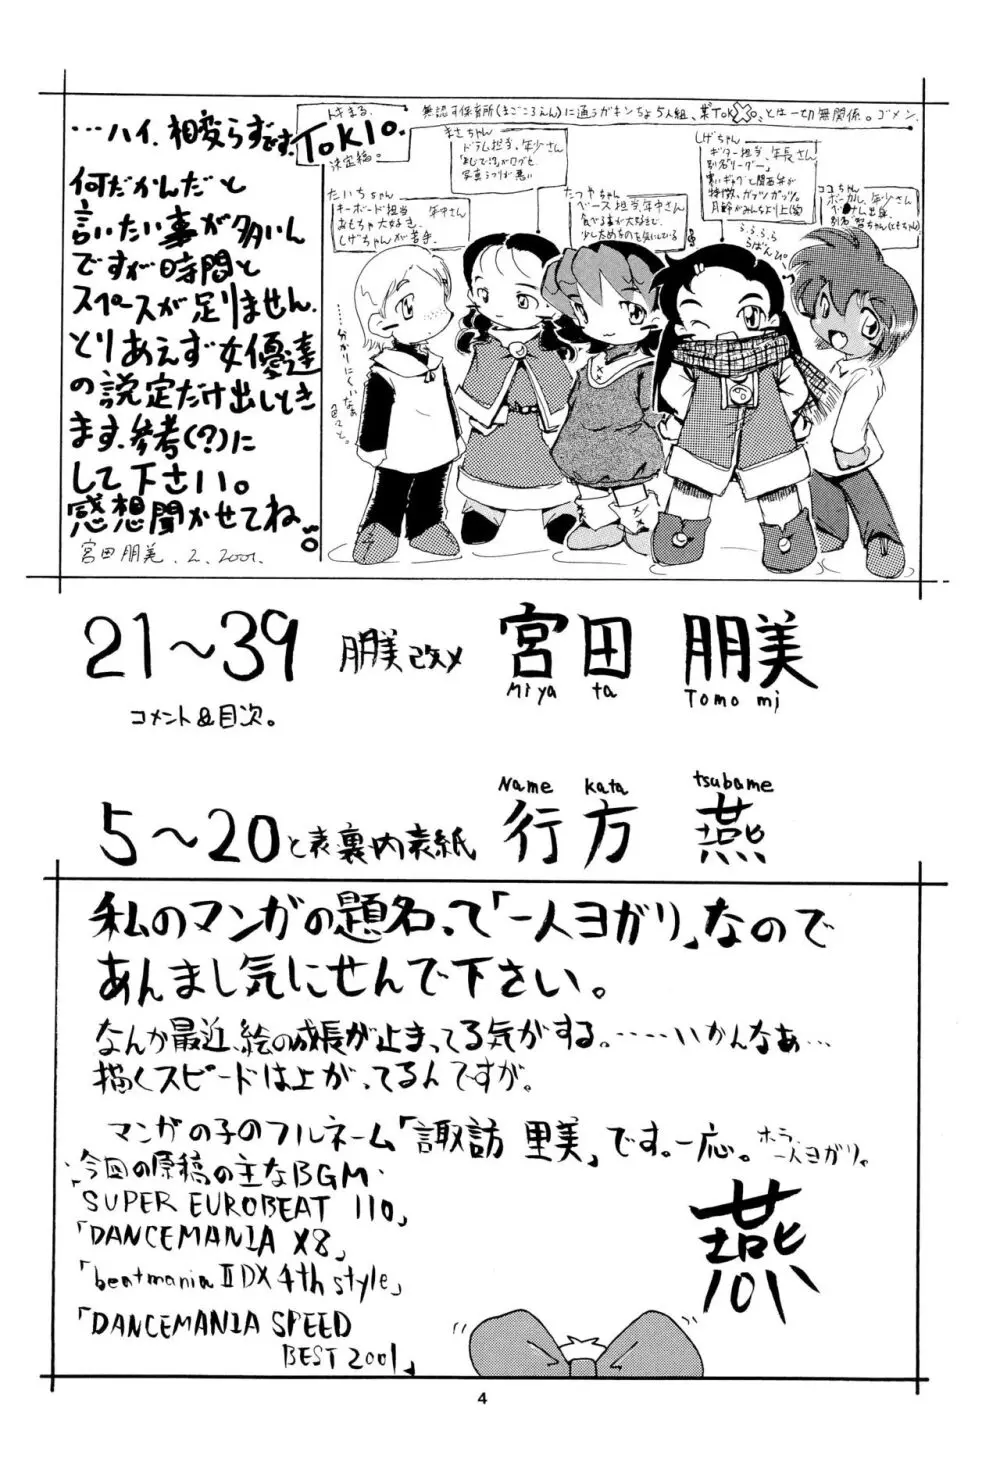 …ハイ、相変らずです。
何だかんだと
言いたい事が多いん
ですが時間と
スペースが足りません。
とりあえず女優達
の設定だけ出しとき
ます、参考(?)に
して下さい。
感想聞かせてね。
宮田朋美. 2. 2001.
トキまる。
ToKIo。
決定編。
無認可保育所(まごころえん)に通うガキンちょ5人組、某ToK✕o、とは一切無関係。ゴメン。
まさちゃん
ドラム担当、年少さん
写真うつりが悪い
たいちちゃん
キーボード担当 年中さん
おもちゃ大好き。
しげちゃんが苦手。
たつやちゃん
ベース担当、年中さん
食べる事が大好きで、
少しためるのを気にしている
しげちゃん
ギター担当、年長さん
別名「リーダー」
寒いギャグと関西弁が
特徴、ガッツガッツ。
月齢がみんなより上(笑)
ココちゃん
ボーカル、年少さん
ベトナム出身
うふふふふ
らばんぴ
……分かりにくいなぁ
21〜39 朋美改メ 宮田 朋美
Miya ta Tomo mi
コメント&目次。
Name kata tsubame
5〜20と表裏内表紙 行方 燕
私のマンガの題名って「一人ヨガリ」なので
あんまし気にせんで下さい。
なんか最近、絵の成長が止まってる気がする。……いかんなぁ…
描くスピードは上がってるんですが。
マンガの子のフルネーム「諏訪 里美」です。一応。ホラ、一人ヨガリ。
今回の原稿の主なBGM
「SUPER EUROBEAT 110」
「DANCEMANIA X8」
「beatmania II DX 4th style」
「DANCEMANIA SPEED
BEST 2001」
燕
4